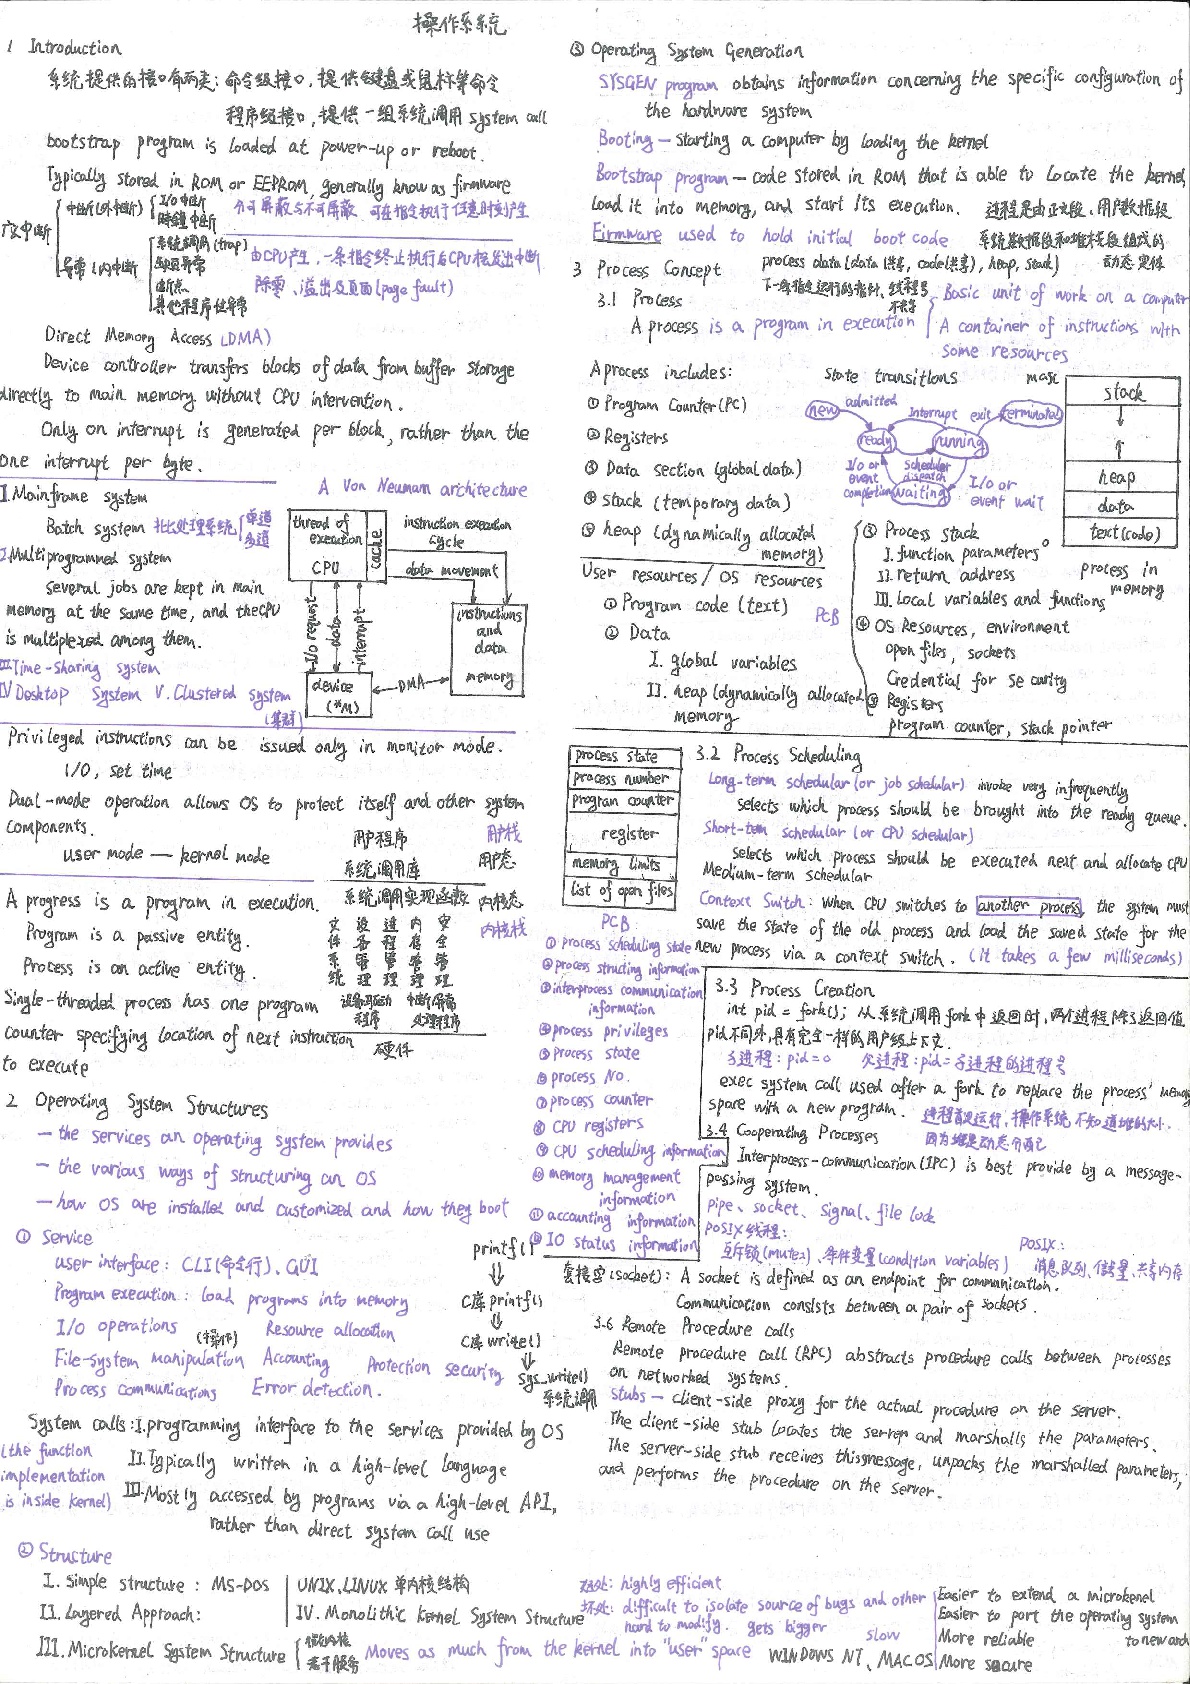 操作系统
1 Introduction
系统提供的接口有两类：命令级接口，提供键盘或鼠标等命令
程序级接口，提供一组系统调用 system call
bootstrap program is loaded at power-up or reboot.
Typically stored in ROM or EEPROM, generally know as firmware
广义中断
中断(外中断)
I/O中断
时钟中断
分可屏蔽与不可屏蔽，可在指令执行任意时刻产生
异常(内中断)
系统调用(trap)
缺页异常
断点
其他程序性异常
由CPU产生，一条指令终止执行后CPU才发出中断
除零、溢出及页面(page fault)
Direct Memory Access (DMA)
Device controller transfers blocks of data from buffer storage
directly to main memory without CPU intervention.
Only on interrupt is generated per block, rather than the
one interrupt per byte.
I. Mainframe system
Batch system 批处理系统
单道
多道
A Von Neumann architecture
II. Multiprogrammed system
several jobs are kept in main
memory at the same time, and the CPU
is multiplexed among them.
III Time-Sharing system
IV Desktop System V. Clustered system
(集群)
thread of
execution
CPU
cache
instruction execution
cycle
data movement
I/O request
data
interrupt
instructions
and
data
memory
device
(*M)
DMA
Privileged instructions can be issued only in monitor mode.
I/O, set time
Dual-mode operation allows OS to protect itself and other system
components.
user mode — kernel mode
用户程序 用户栈
系统调用库 用户态
系统调用实现函数 内核态
内核栈
文件系统
设备管理
进程管理
内存管理
安全管理
设备驱动程序
中断异常处理程序
硬件
A progress is a program in execution.
Program is a passive entity.
Process is an active entity.
Single-threaded process has one program
counter specifying location of next instruction
to execute
2 Operating System Structures
— the services an operating system provides
— the various ways of structuring an OS
— how OS are installed and customized and how they boot
① Service
user interface: CLI(命令行)、GUI
Program execution: load programs into memory
I/O operations Resource allocation
(操作)
File-system manipulation Accounting Protection security
Process communications Error detection.
printf()
C库 printf()
C库 write()
sys_write()
系统调用
System calls: I. programming interface to the services provided by OS
(the function
implementation
is inside kernel)
II. Typically written in a high-level language
III. Mostly accessed by programs via a high-level API,
rather than direct system call use
② Structure
I. Simple structure: MS-DOS
II. Layered Approach:
UNIX, LINUX 单内核结构
IV. Monolithic Kernel System Structure
好处: highly efficient
坏处: difficult to isolate source of bugs and other
hard to modify. gets bigger slow
III. Microkernel System Structure
微内核
若干服务
Moves as much from the kernel into "user" space WINDOWS NT、MACOS
Easier to extend a microkenel
Easier to port the operating system
to new arch
More reliable
More secure
③ Operating System Generation
SYSGEN program obtains information concerning the specific configuration of
the hardware system
Booting — Starting a computer by loading the kernel
Bootstrap program — code stored in ROM that is able to Locate the kernel,
Load it into memory, and start its execution.
Firmware used to hold initial boot code
进程是由正文段、用户数据段
系统数据段和堆栈段组成的
动态实体
3 Process Concept
process data (data 共享, code(共享), heap, stack)
下一条指令运行的指针、线程号
不共享
3.1 Process
A process is a program in execution
Basic unit of work on a computer
A container of instructions with
some resources
A process includes:
① Program Counter (PC)
② Registers
③ Data section (global data)
④ stack (temporary data)
⑤ heap (dynamically allocated
memory)
State transitions
new
admitted
Interrupt
exit
terminated
ready
running
scheduler
dispatch
I/O or
event
completion
waiting
I/O or
event wait
max
stack
heap
data
text(code)
process in
memory
User resources / OS resources
① Program code (text)
② Data
I. global variables
II. heap (dynamically allocated
memory
PCB
③ Process stack
I. function parameters
II. return address
III. Local variables and functions
④ OS Resources, environment
open files, sockets
Credential for security
⑤ Registers
program counter, stack pointer
process state
process number
program counter
register
memory limits
list of open files
PCB
① process scheduling state
② process structing information
③ interprocess communication
information
④ process privileges
⑤ process state
⑥ process No.
⑦ process counter
⑧ CPU registers
⑨ CPU scheduling information
⑩ memory management
information
⑪ accounting information
⑫ IO status information
3.2 Process Scheduling
Long-term schedular (or job schedular) invoke very infrequently
selects which process should be brought into the ready queue.
Short-tem schedular (or CPU schedular)
selects which process should be executed next and allocate CPU
Medium-term schedular
Context Switch: when CPU switches to another process, the system must
save the state of the old process and load the saved state for the
new process via a context switch. (It takes a few milliseconds)
3.3 Process Creation
int pid = fork(); 从系统调用fork中返回时，两个进程除了返回值
pid不同外，具有完全一样的用户级上下文.
子进程：pid=0 父进程：pid=子进程的进程号
exec system call used after a fork to replace the process' memory
space with a new program.
进程首次运行，操作系统不知道堆的大小.
因为堆是动态分配
3.4 Cooperating Processes
Interprocess-communication (IPC) is best provide by a message-
passing system.
Pipe、socket、signal、file lock
POSIX线程：
互斥锁(mutex)、条件变量(condition variables)
POSIX：
消息队列、信号量、共享内存
套接字(socket): A socket is defined as an endpoint for communication.
Communication consists between a pair of sockets.
3.6 Remote Procedure calls
Remote procedure call (RPC) abstracts procedure calls between processes
on networked systems.
Stubs — client-side proxy for the actual procedure on the server.
The client-side stub locates the server and marshalls the parameters.
The server-side stub receives this message, unpacks the marshalled parameters,
and performs the procedure on the server.